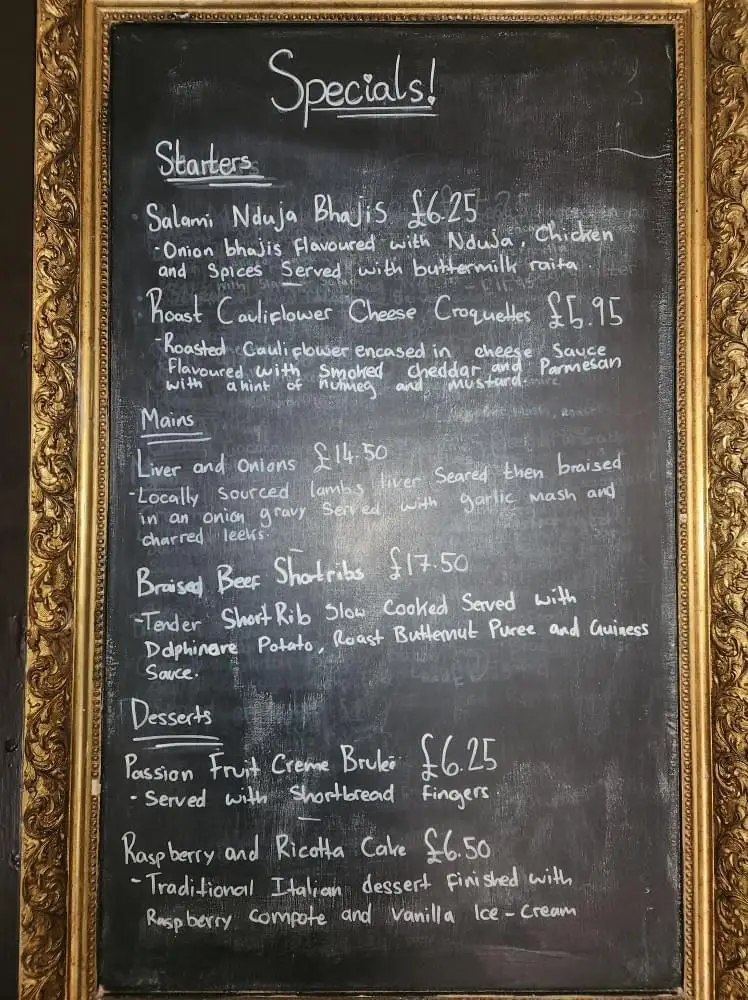 Specials!
Starters
Salami Nduja Bhajis £6.25
- Onion bhajis Flavoured with Nduja, Chicken
and Spices Served with buttermilk raita.
Roast Cauliflower Cheese Croquettes £5.95
- Roasted Cauliflower encased in cheese Sauce
Flavoured with Smoked cheddar and Parmesan
with a hint of nutmeg and mustard.
Mains
Liver and onions £14.50
- Locally sourced lambs liver Seared then braised
in an onion gravy Served with garlic mash and
charred leeks.
Braised Beef Shortribs £17.50
- Tender Short Rib Slow Cooked Served with
Dolphinore Potato, Roast Butternut Puree and Guiness
Sauce.
Desserts
Passion Fruit Creme Brulee £6.25
- Served with Shortbread fingers.
Raspberry and Ricotta Cake £6.50
- Traditional Italian dessert Finished with
Raspberry compote and vanilla Ice-Cream